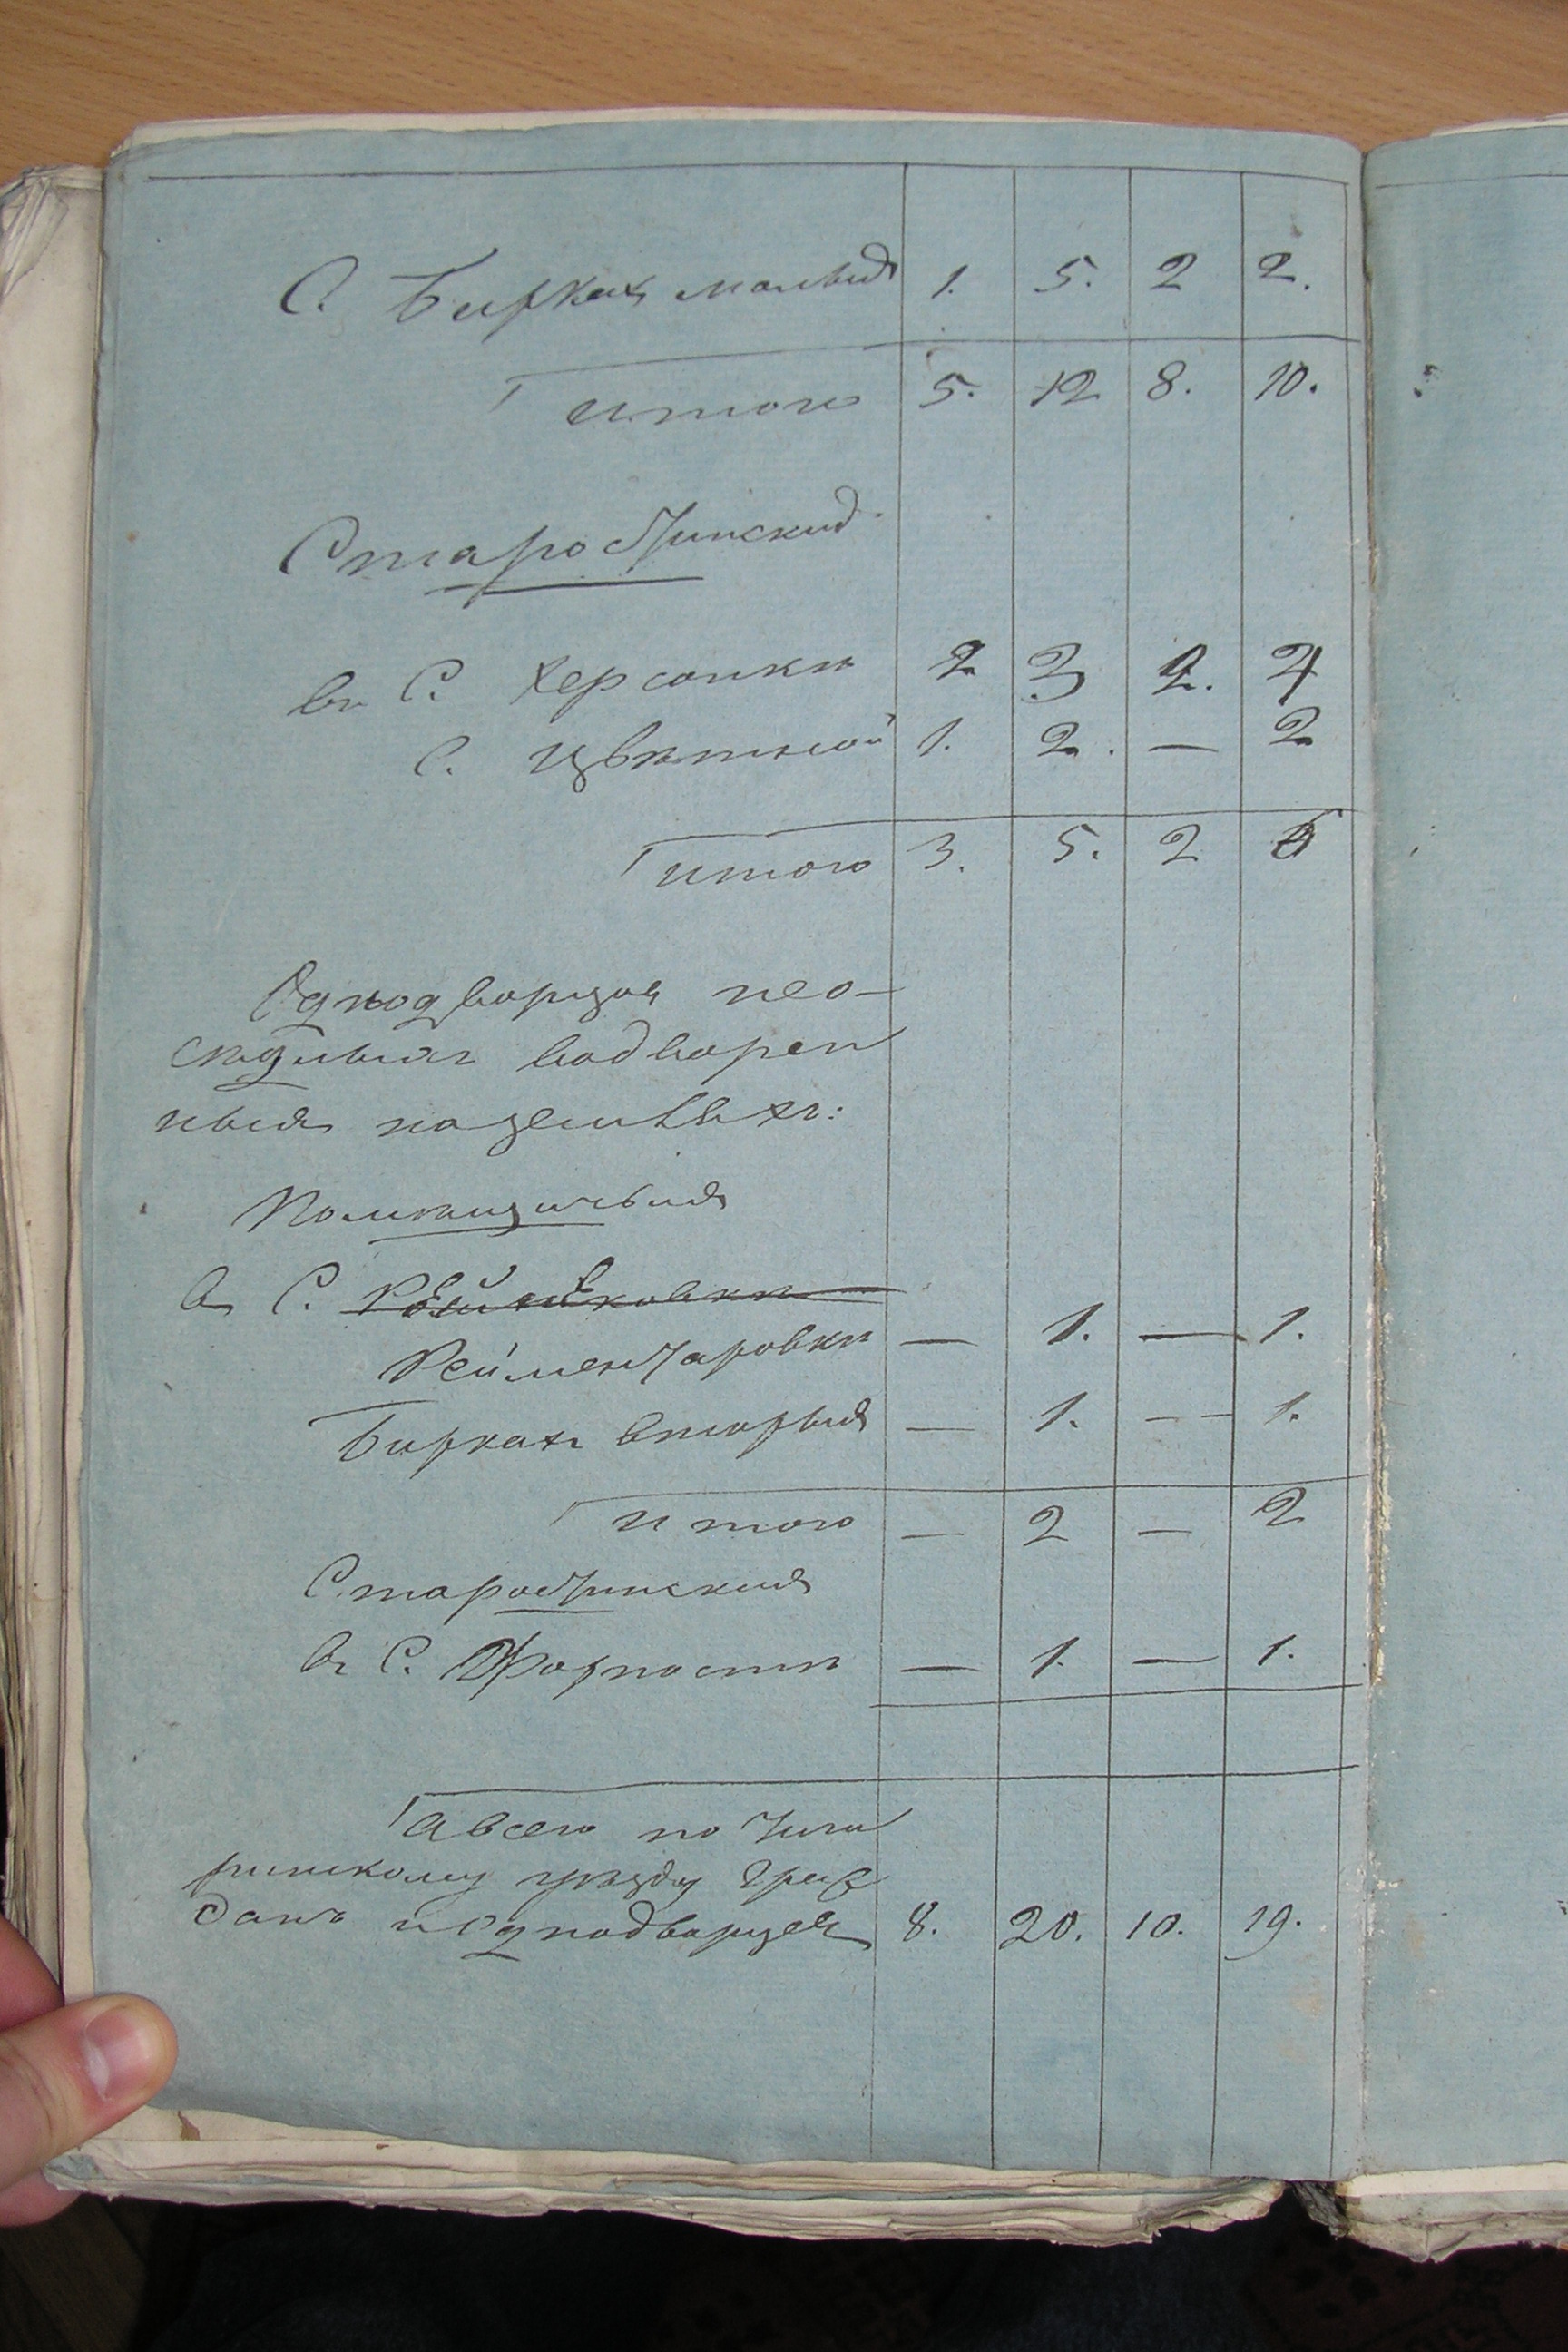 С. Бирках малых 1. 5. 2 2.
итого 5. 12 8. 10.
Старостинских
въ С. Херсонки 2 3 2. 4
С. Цвѣтной 1. 2. — 2
итого 3. 5. 2 6
Однодворцовъ нео-
сѣдлыхъ водворен
ныхъ на земляхъ:
Помѣщичьихъ
въ С.
Рейментаровки — 1. — 1.
Биркахъ вторых — 1. — 1.
итого — 2 — 2
Старостинских
въ С. Форпости — 1. — 1.
А всего по Чиги
ринскому уѣзду граж
данъ и Однодворцевъ 8. 20. 10. 19.